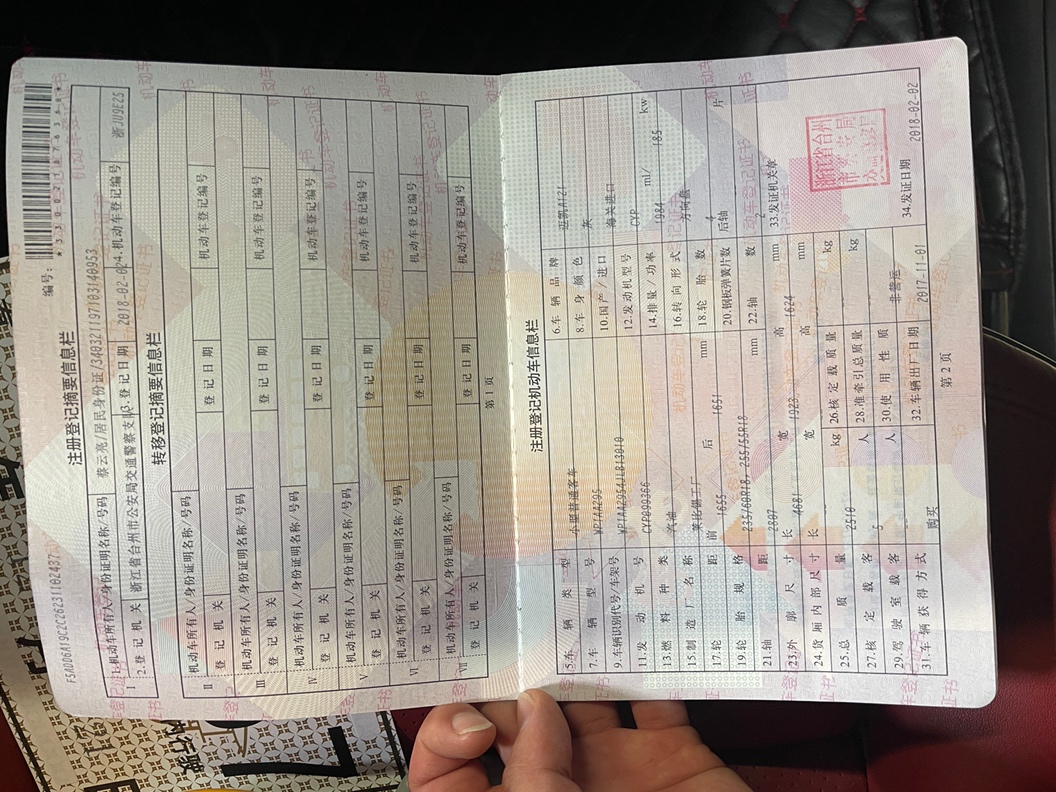 编号:
注册登记摘要信息栏
1 1.机动车所有人/身份证明名称/号码 蔡云亮/居民身份证/340321197103140953
2.登记机关 浙江省台州市公安局交通警察支队 3.登记日期 2018-02-02 4.机动车登记编号 浙JU9E25
转移登记摘要信息栏
Ⅱ 机动车所有人/身份证明名称/号码
登记机关 登记日期 机动车登记编号
Ⅲ 机动车所有人/身份证明名称/号码
登记机关 登记日期 机动车登记编号
Ⅳ 机动车所有人/身份证明名称/号码
登记机关 登记日期 机动车登记编号
Ⅴ 机动车所有人/身份证明名称/号码
登记机关 登记日期 机动车登记编号
Ⅵ 机动车所有人/身份证明名称/号码
登记机关 登记日期 机动车登记编号
Ⅶ 机动车所有人/身份证明名称/号码
登记机关 登记日期 机动车登记编号
第 1 页
注册登记机动车信息栏
5.车辆类型 小型普通客车 6.车辆品牌
7.车辆型号 WP1AA295 8.车身颜色 灰
9.车辆识别代号/车架号 WP1AA2954JLB13010 10.国产/进口 海关进口
11.发动机号 CYP099366 12.发动机型号 CYP
13.燃料种类 汽油 14.排量/功率 1984 ml/ 185 kw
15.制造厂名称 莱比锡工厂 16.转向形式 方向盘
17.轮距 前 1655 后 1651 mm 18.轮胎数 4
19.轮胎规格 235/60R18, 255/55R18 20.钢板弹簧片数 后轴 片
21.轴距 2807 mm 22.轴数 2
23.外廓尺寸 长 4681 宽 1923 高 1624 mm 33.发证机关章
24.货厢内部尺寸 长 宽 高 mm
25.总质量 2510 kg 26.核定载质量 kg
27.核定载客 5 人 28.准牵引总质量 kg
29.驾驶室载客 人 30.使用性质 非营运
31.车辆获得方式 购买 32.车辆出厂日期 2017-11-01 34.发证日期 2018-02-02
浙江省台州
第 2 页